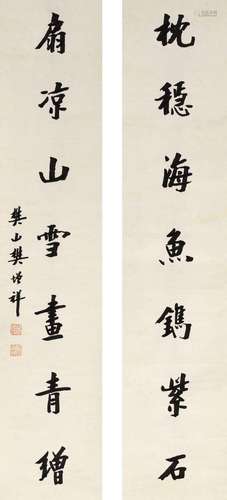 枕穩海魚鐫紫石
扇凉山雪畫青繒
樊山樊增祥